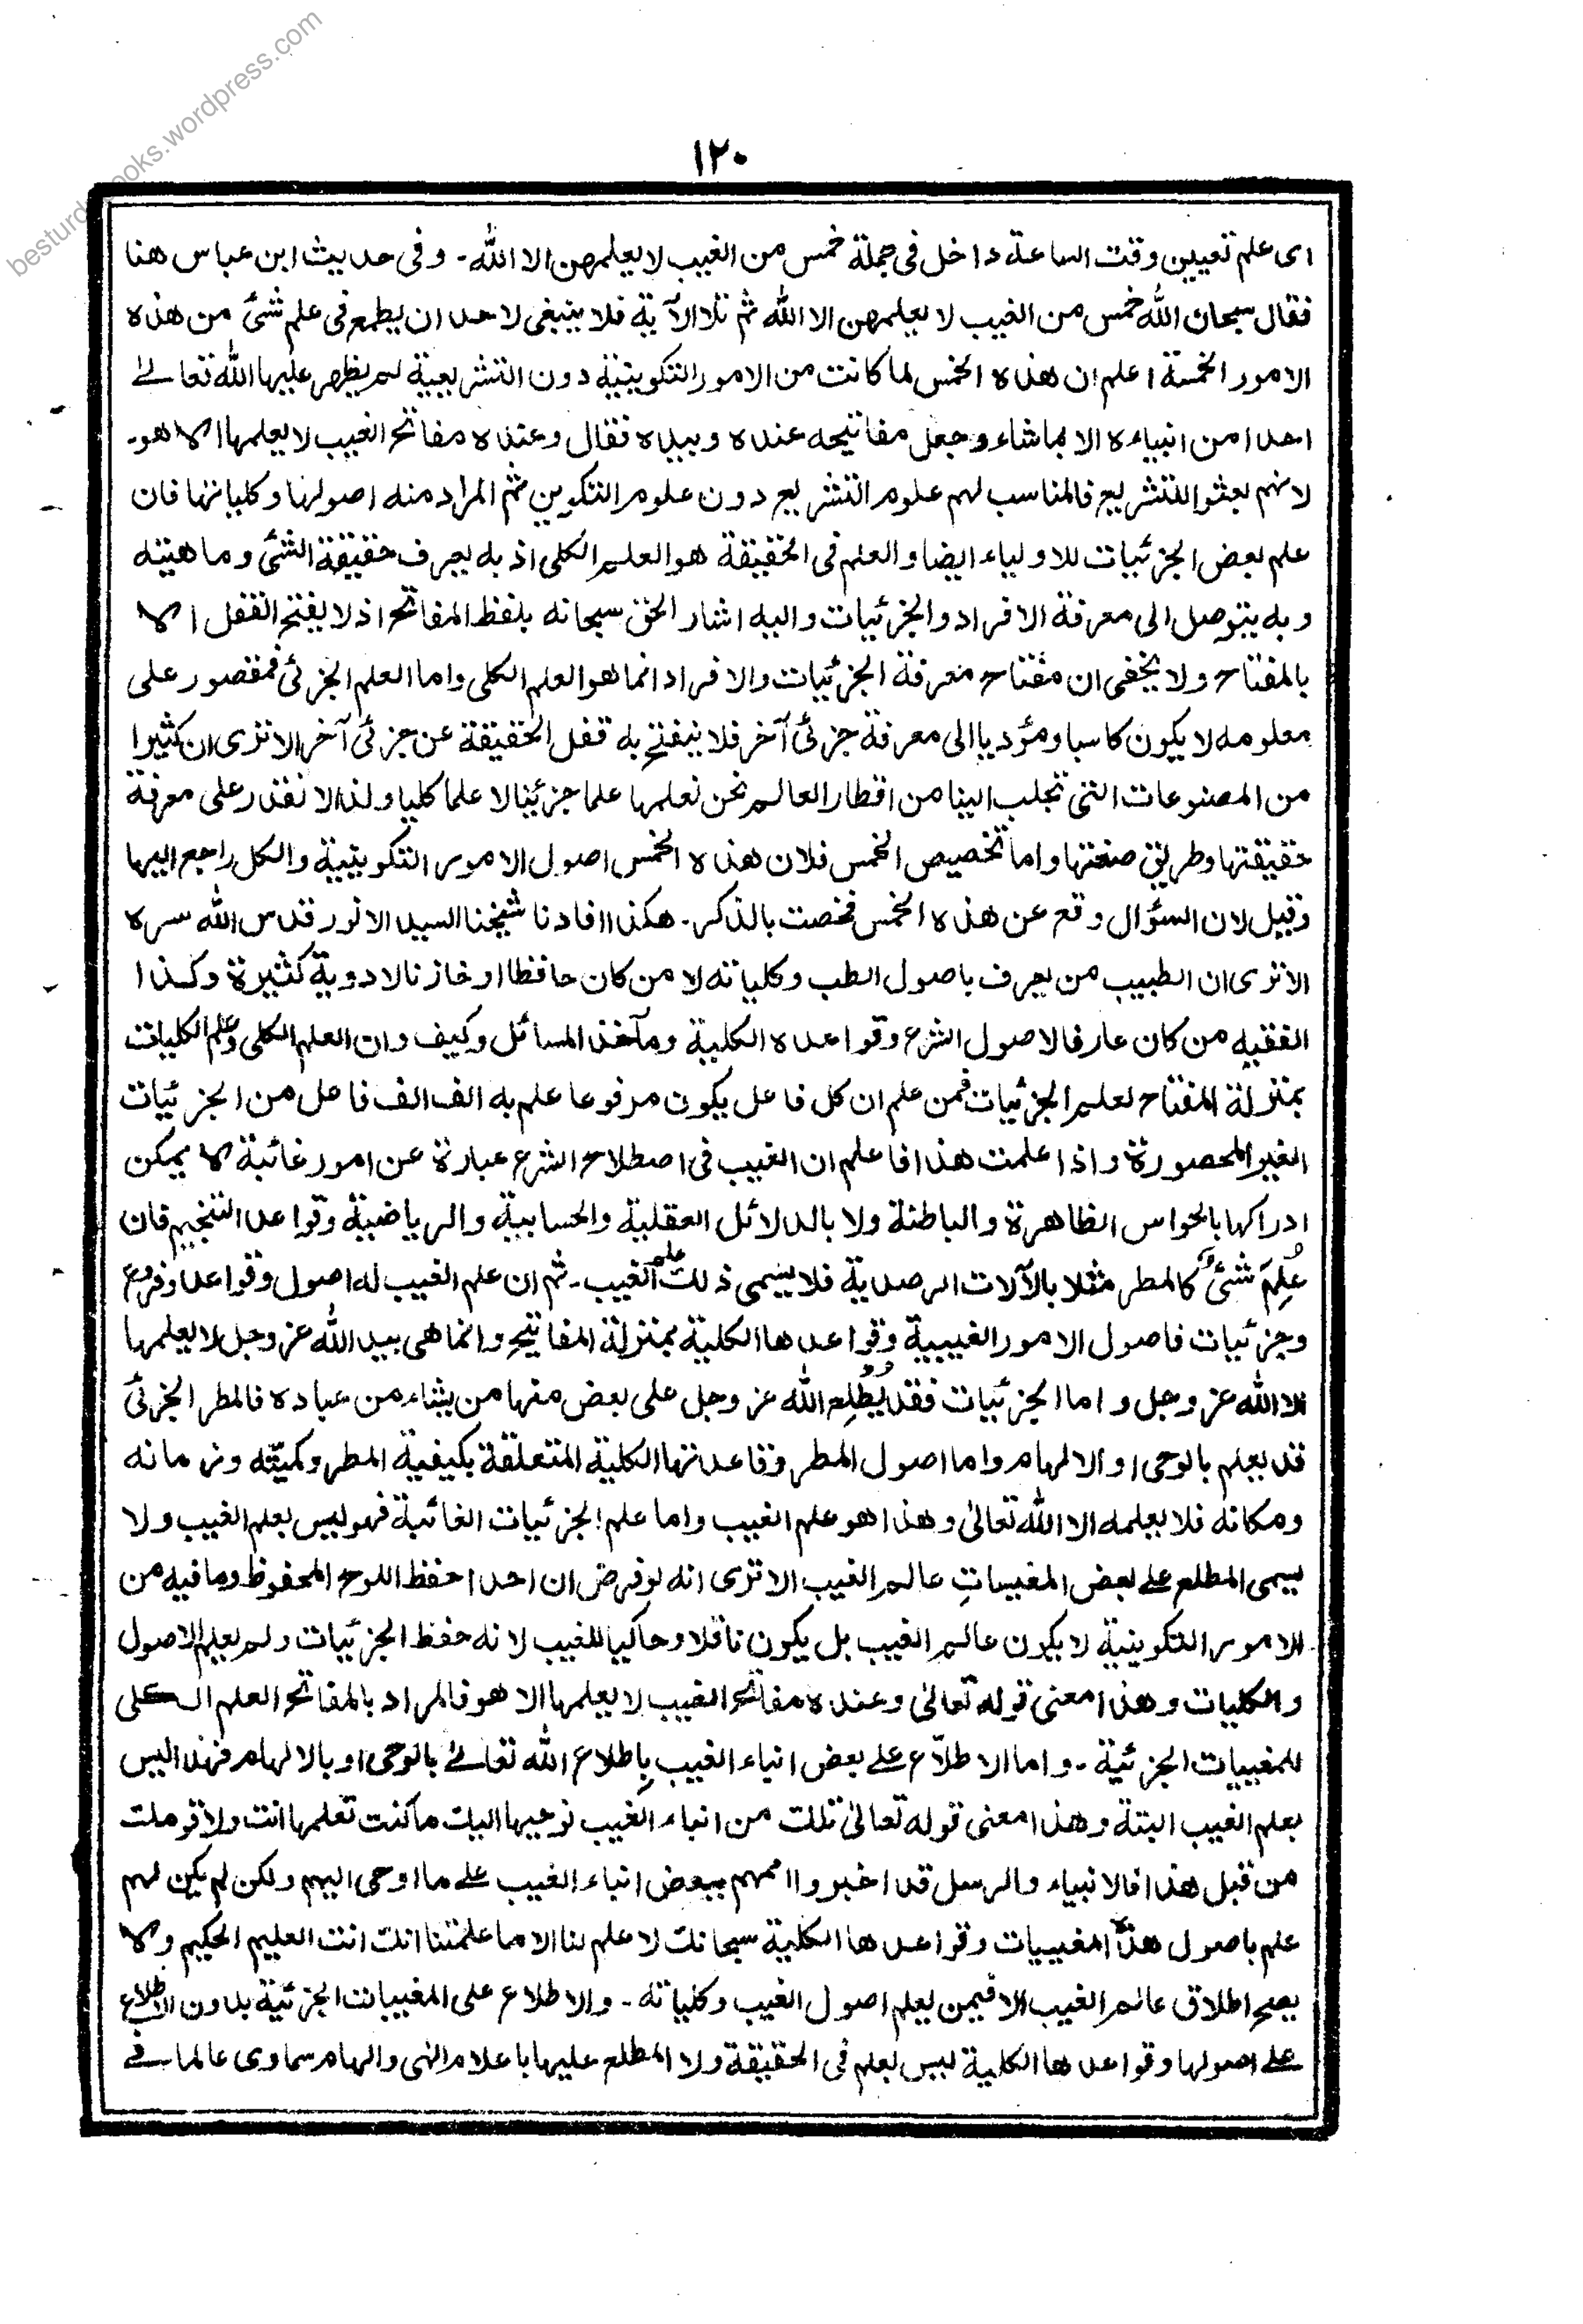 besturdubooks.wordpress.com
١٢٠
اى علم تعيين وقت الساعة داخل فى جملة خمس من الغيب لا يعلمهن الا الله - وفى حديث ابن عباس هنا
فقال سبحان الله خمس من الغيب لا يعلمهن الا الله ثم تلا الآية فلا ينبغى لاحد ان يطمع فى علم شئ من هذه
الامور الخمسة اعلم ان هذه الخمس لما كانت من الامور التكوينية دون التشريعية لم يظهر عليها الله تعالى
احدا من انبياءه الا بماشاء وجعل مفاتيحه عنده وبيده فقال وعنده مفاتح الغيب لا يعلمها الا هو-
لانهم بعثوا للتشريع فالمناسب لهم علوم التشريع دون علوم التكوين ثم المراد منه اصولها وكلياتها فان
علم بعض الجزئيات للاولياء ايضا والعلم فى الحقيقة هو العلم الكلى اذ به يعرف حقيقة الشئ وماهيته
وبه يتوصل الى معرفة الافراد والجزئيات واليه اشار الحق سبحانه بلفظ المفاتح اذ لا يفتح القفل الا
بالمفتاح ولا يخفى ان مفتاح معرفة الجزئيات والافراد انما هو العلم الكلى واما العلم الجزئى فمقصور على
معلومه لا يكون كاسبا ومؤديا الى معرفة جزئى آخر فلا ينفتح به قفل الحقيقة عن جزئى آخر الا ترى ان كثيرا
من المصنوعات التى تجلب الينا من اقطار العالم نحن نعلمها علما جزئيا لا علما كليا ولذا لا نقدر على معرفة
حقيقتها وطريق صنعتها واما تخصيص الخمس فلان هذه الخمس اصول الامور التكوينية والكل راجع اليها
وقيل لان السؤال وقع عن هذه الخمس فخصت بالذكر - هكذا افادنا شيخنا السيد الانور قدس الله سره
الا ترى ان الطبيب من يعرف باصول الطب وكلياته لا من كان حافظا او خازنا لادوية كثيرة وكذا
الفقيه من كان عارفا لاصول الشرع وقواعده الكلية ومآخذ المسائل وكيف وان العلم الكلى وعلم الكليات
بمنزلة المفتاح لعلم الجزئيات فمن علم ان كل فاعل يكون مرفوعا علم به الف الف فاعل من الجزئيات
الغير المحصورة واذا علمت هذا فاعلم ان الغيب فى اصطلاح الشرع عبارة عن امور غائبة لا يمكن
ادراكها بالحواس الظاهرة والباطنة ولا بالدلائل العقلية والحسابية والرياضية وقواعد التنجيم فان
عُلِمَ شئ كالمطر مثلا بالآلات الرصدية فلا يسمى ذلك علم الغيب - ثم ان علم الغيب له اصول وقواعد وفروع
وجزئيات فاصول الامور الغيبية وقواعدها الكلية بمنزلة المفاتيح وانما هى بيد الله عز وجل لا يعلمها
الا الله عز وجل واما الجزئيات فقد يُطْلِع الله عز وجل على بعض منها من يشاء من عباده فالمطر الجزئى
قد يعلم بالوحى او الالهام واما اصول المطر وقاعدتها الكلية المتعلقة بكيفية المطر وكميّته وزمانه
ومكانه فلا يعلمه الا الله تعالىٰ وهذا هو علم الغيب واما علم الجزئيات الغائبة فهو ليس بعلم الغيب ولا
يسمى المطلع على بعض المغيبات عالم الغيب الا ترى انه لو فرض ان احدا حفظ اللوح المحفوظ وما فيه من
الامور التكوينية لا يكون عالم الغيب بل يكون ناقلا وحاكيا للغيب لانه حفظ الجزئيات ولم يعلم الاصول
والكليات وهذا معنى قوله تعالىٰ وعنده مفاتح الغيب لا يعلمها الا هو فالمراد بالمفاتح العلم الكلى
للمغيبات الجزئية - واما الاطلاع على بعض انباء الغيب باطلاع الله تعالى بالوحى او بالالهام فهذا ليس
بعلم الغيب البتة وهذا معنى قوله تعالىٰ تلك من انباء الغيب نوحيها اليك ما كنت تعلمها انت ولا قومك
من قبل هذا فالانبياء والرسل قد اخبروا اممهم ببعض انباء الغيب على ما اوحى اليهم ولكن لم يكن لهم
علم باصول هذه المغيبات وقواعدها الكلية سبحانك لا علم لنا الا ما علمتنا انك انت العليم الحكيم ولا
يصح اطلاق عالم الغيب الا فيمن يعلم اصول الغيب وكلياته - والاطلاع على المغيبات الجزئية بدون الاطلاع
على اصولها وقواعدها الكلية ليس بعلم فى الحقيقة ولا المطلع عليها باعلام الٰهى والهام سماوى عالما فى